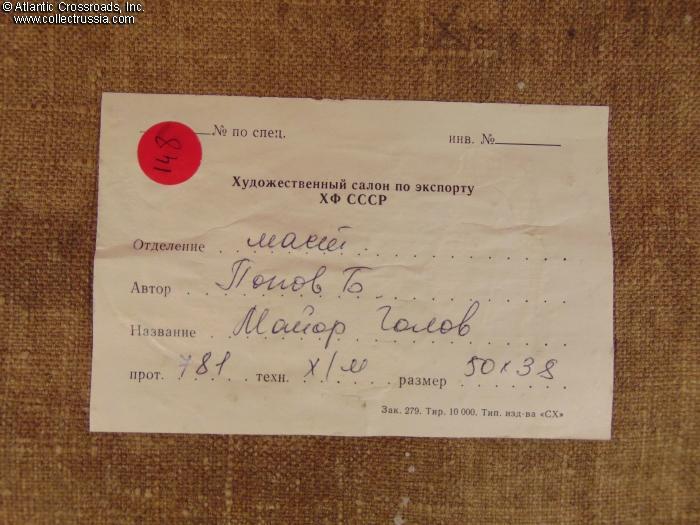 © Atlantic Crossroads, Inc.
www.collectrussia.com
148
№ по спец. инв. №
Художественный салон по экспорту
ХФ СССР
Отделение
Автор Попов Б
Название Майор Голов
прот. 781 техн. х/м размер 50х38
Зак. 279. Тир. 10 000. Тип. изд-ва «СХ»